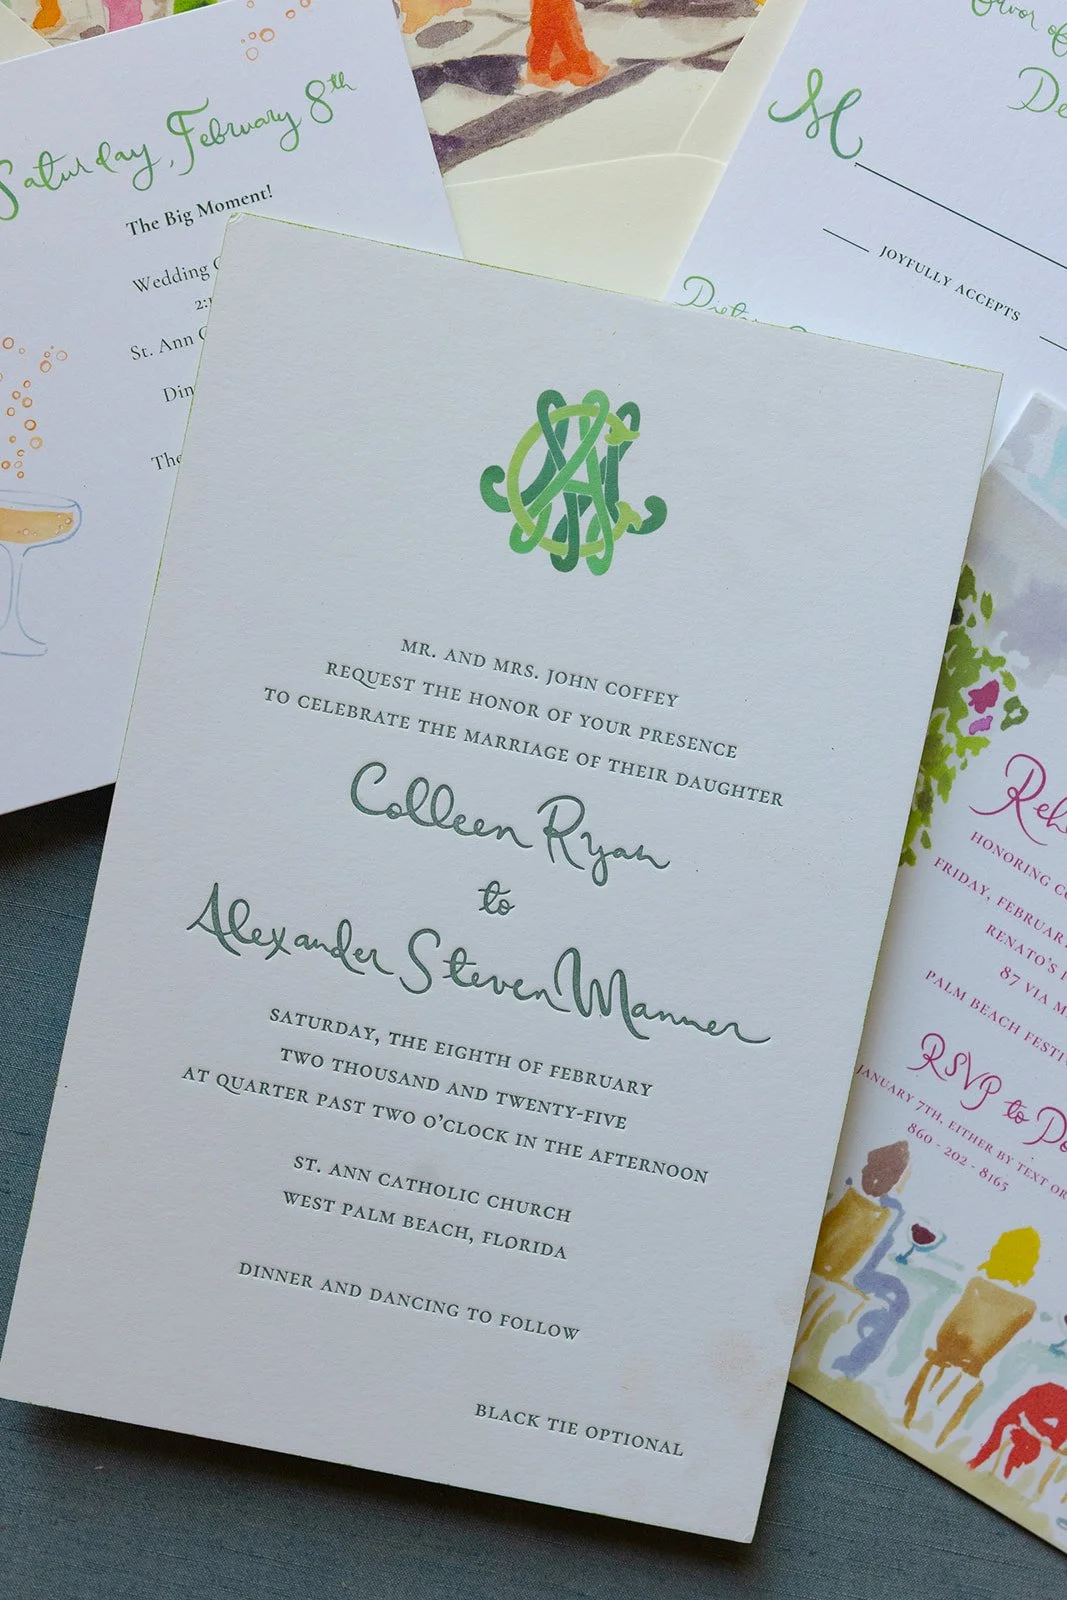 Saturday, February 8th
The Big Moment!
Wedding
2:
St. Ann
The
M
JOYFULLY ACCEPTS
MR. AND MRS. JOHN COFFEY
REQUEST THE HONOR OF YOUR PRESENCE
TO CELEBRATE THE MARRIAGE OF THEIR DAUGHTER
Colleen Ryan
to
Alexander Steven Manner
SATURDAY, THE EIGHTH OF FEBRUARY
TWO THOUSAND AND TWENTY-FIVE
AT QUARTER PAST TWO O'CLOCK IN THE AFTERNOON
ST. ANN CATHOLIC CHURCH
WEST PALM BEACH, FLORIDA
DINNER AND DANCING TO FOLLOW
BLACK TIE OPTIONAL
HONORING
FRIDAY,
RENATO'S
87 VIA
PALM BEACH
RSVP to
JANUARY 7TH, EITHER BY TEXT OR
860 - 202 - 8165